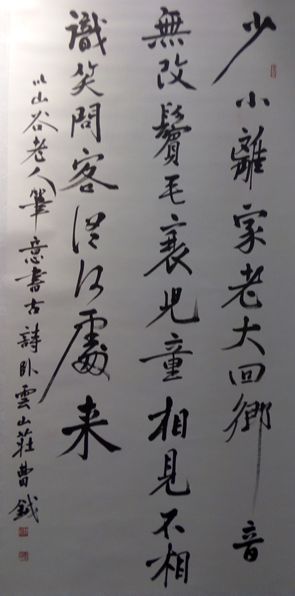 少小離家老大回鄉音
無改鬢毛衰兒童相見不相
識笑問客從何處来
以山谷老人筆意書古詩臥雲山莊曹鉞